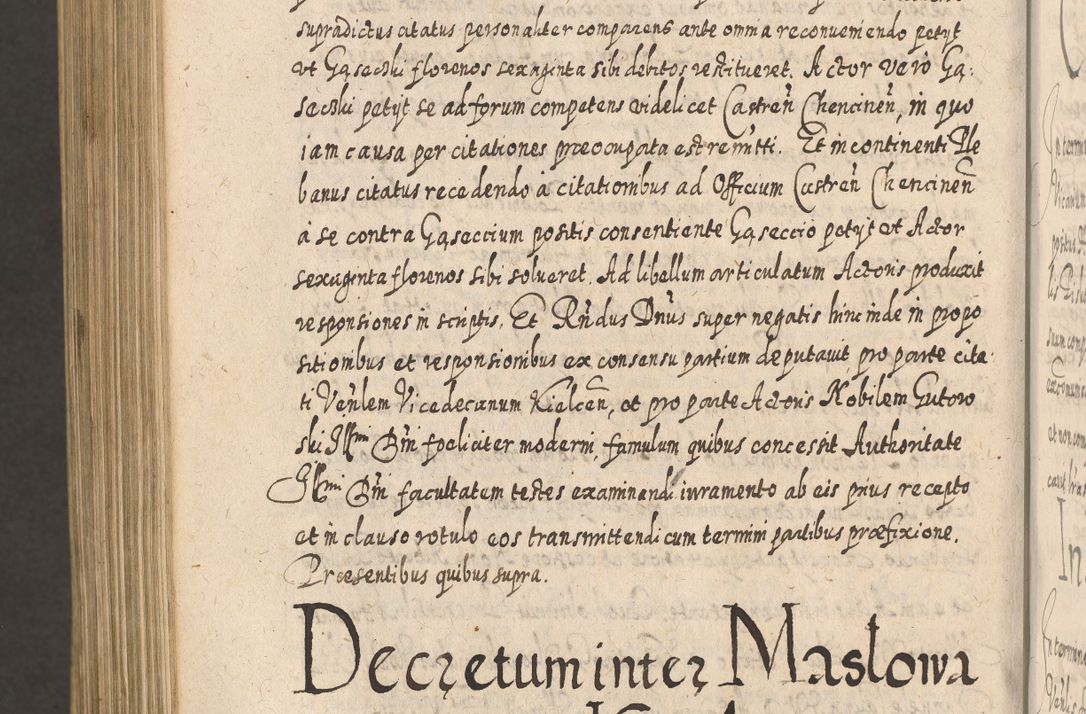 supradictus citatus personaliter comparens ante omnia reconveniendo petyt
vt Gąsecki florenos sexaginta sibi debitos restitueret. Actor vero Gą:
secki petyt se ad forum competens videlicet Castreñ Chencineñ, in quo
iam causa per citationes præocupata est remitti. Et in continenti Ple
banus citatus recedendo à citationibus ad Officium Castreñ Chencineñ
a se contra Gąseccium positis consentiente Gąseccio petyt vt Actor
sexaginta florenos sibi solueret. Ad libellum articulatum Actoris produxit
responsiones in scriptis. Et Rñdus Dñus super negatis hinc inde in propo
sitionibus et responsionibus ex consensu partium deputauit pro parte cita
ti Veñlem Vicedecanum Kielceñ, et pro parte Actoris Nobilem Gutow
ski Illmi Dñi foeliciter moderni, famulum quibus concessit Authoritate
Illmi Dñi facultatem testes examinandi iuramento ab eis prius recepto
et in clauso rotulo eos transmittendi cum termini partibus præfixione.
Præsentibus quibus supra.
Decretum inter Maslowa